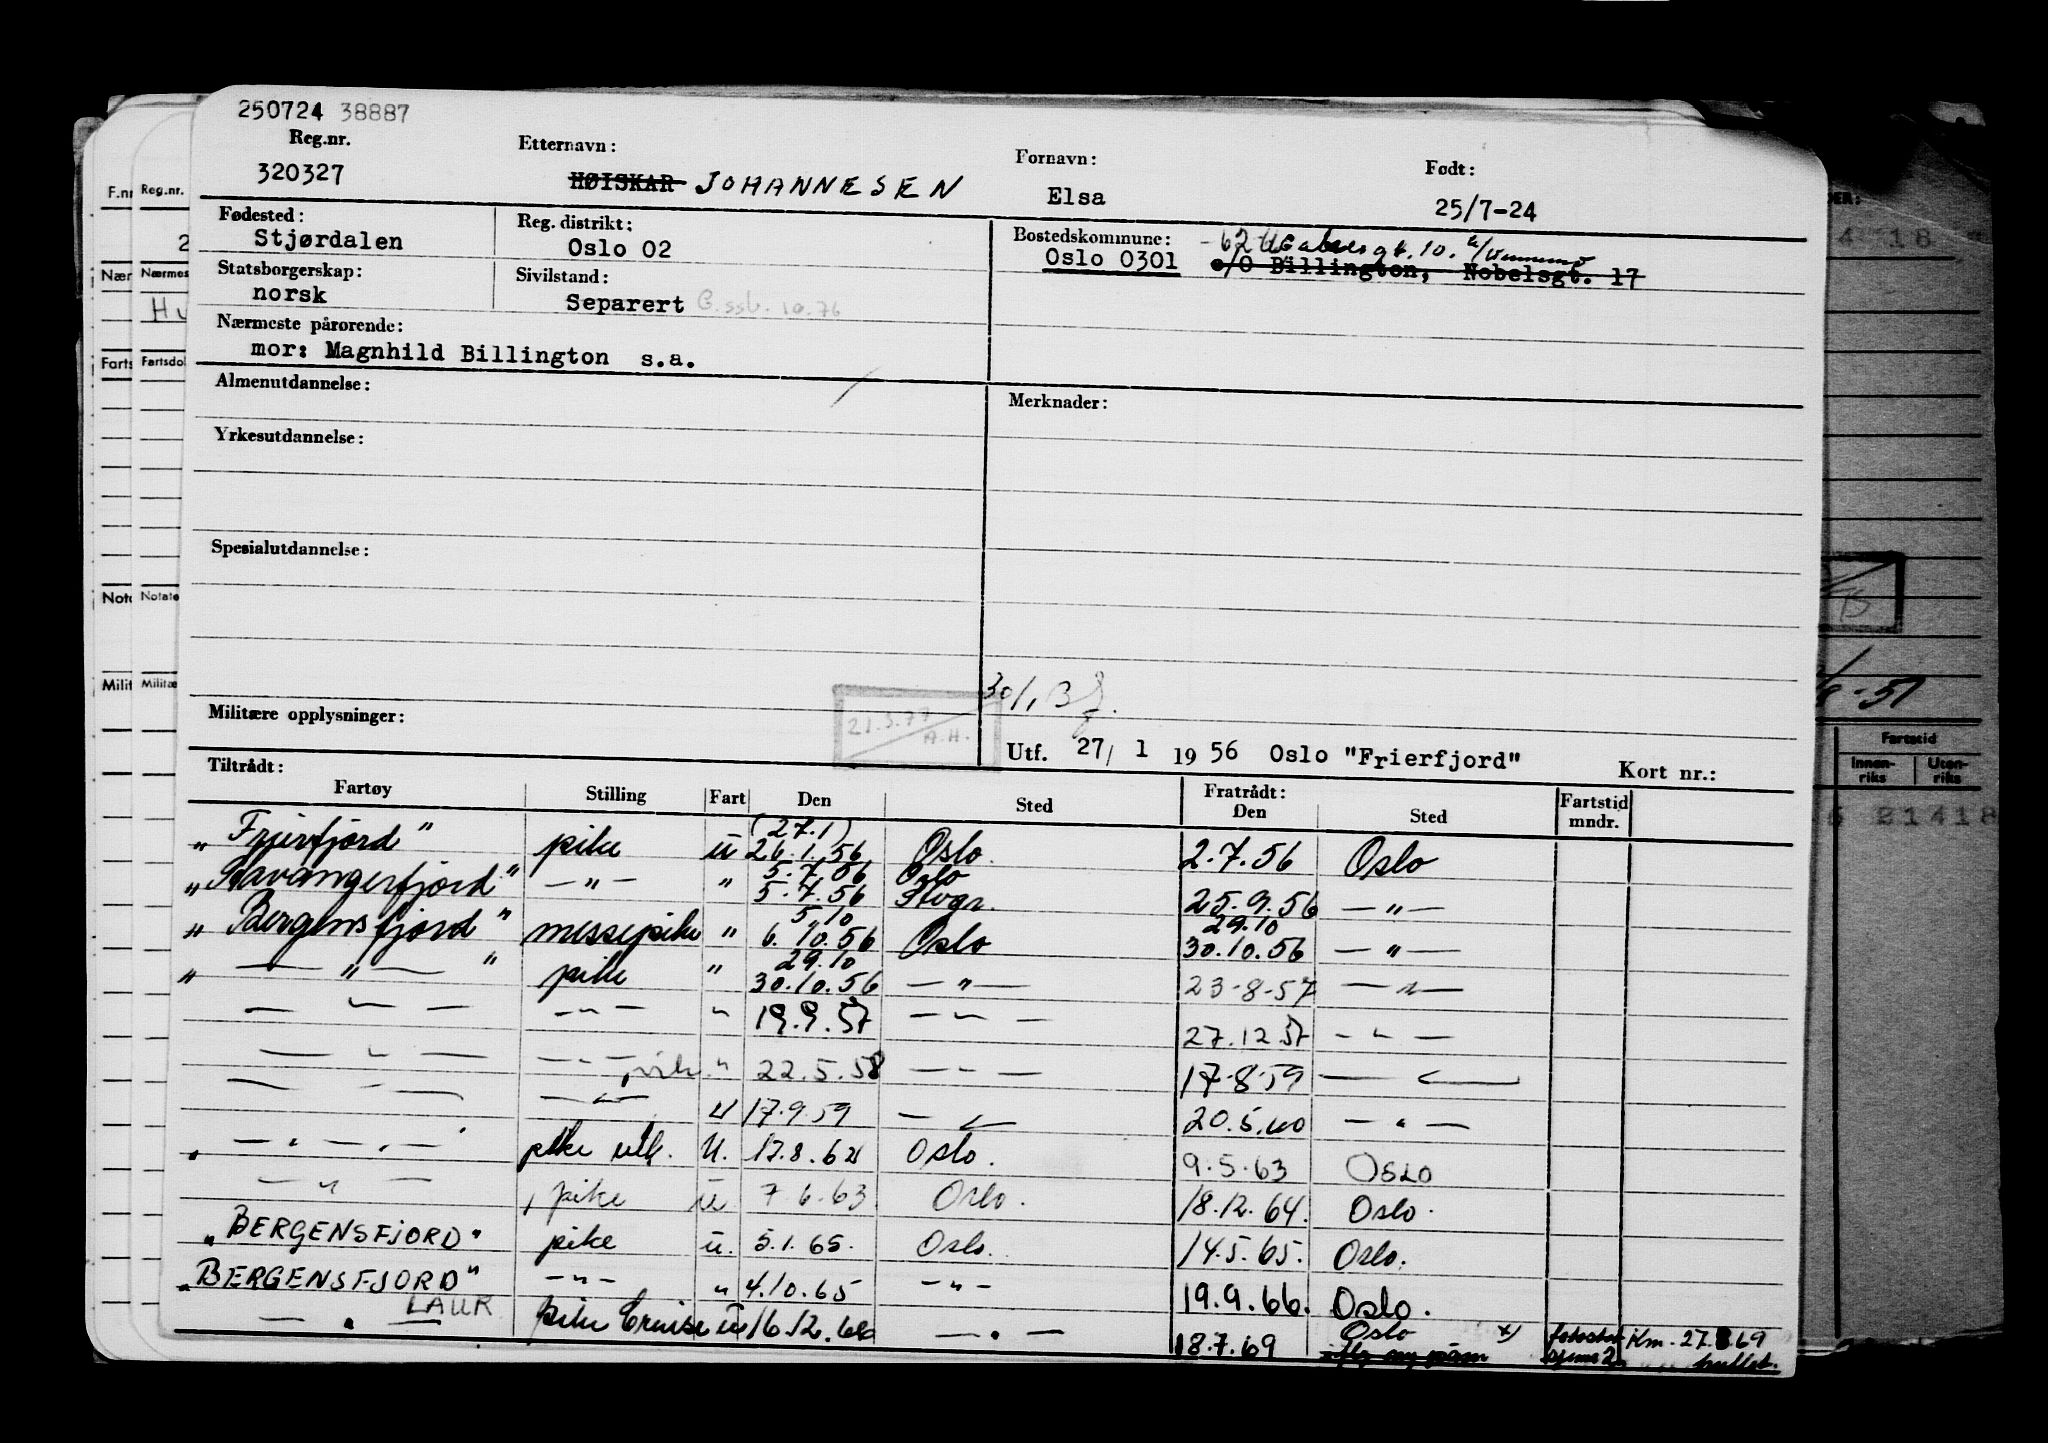 250724 38887
Reg.nr. Etternavn: Fornavn: Født:
320327 HØISKAR JOHANNESEN Elsa 25/7-24
Fødested: Reg. distrikt: Bostedskommune:
Stjørdalen Oslo 02 Oslo 0301 gt. 10.
c/o Billington, Nobelsgt. 17
Statsborgerskap: Sivilstand:
norsk Separert 10.76
Nærmeste pårørende:
mor: Magnhild Billington s.a.
Almenutdannelse: Merknader:
Yrkesutdannelse:
Spesialutdannelse:
30/1
Militære opplysninger: 21.3.77 A.H.
Utf. 27/ 1 1956 Oslo "Frierfjord" Kort nr.:
Tiltrådt: Fratrådt:
Fartøy Stilling Fart Den Sted Den Sted Fartstid mndr.
(27.1)
"Frierfjord" pike u 26.1.56 Oslo. 2.7.56 Oslo
5.7.56 Oslo
"Stavangerfjord" — " — " 5.7.56 Stvgr. 25.9.56 — " —
5.10 29.10
"Bergensfjord" messepike " 6.10.56 Oslo 30.10.56 — " —
29.10
" — " — " pike " 30.10.56 — " — 23-8-57 — " —
— " — — " — " 19.9.57 — " — 27.12.57 — " —
— " — — " — " 22.5.58 — " — 17-8-59 — " —
— " — — " — u 17.9.59 — " — 20.5.60 — " —
" — " — " — " pike utl. U. 17.8.62 Oslo. 9.5.63 OSLO
— " — pike u 7.6.63 Oslo. 18.12.64. Oslo.
"BERGENSFJORD" pike u. 5.1.65. Oslo. 14.5.65. Oslo.
"BERGENSFJORD" — " — " 4.10.65 — " — 19.9.66. Oslo.
LAUR
— " — pike Cruise u 16.12.66 — " — 18.7.69 Oslo x)
F.nr Reg.nr.
Nær Nærmes
Farts Fartsdol
Noto Notate
Milit Militæ
-51
Fartstid
Innen-riks Uten-riks
21418